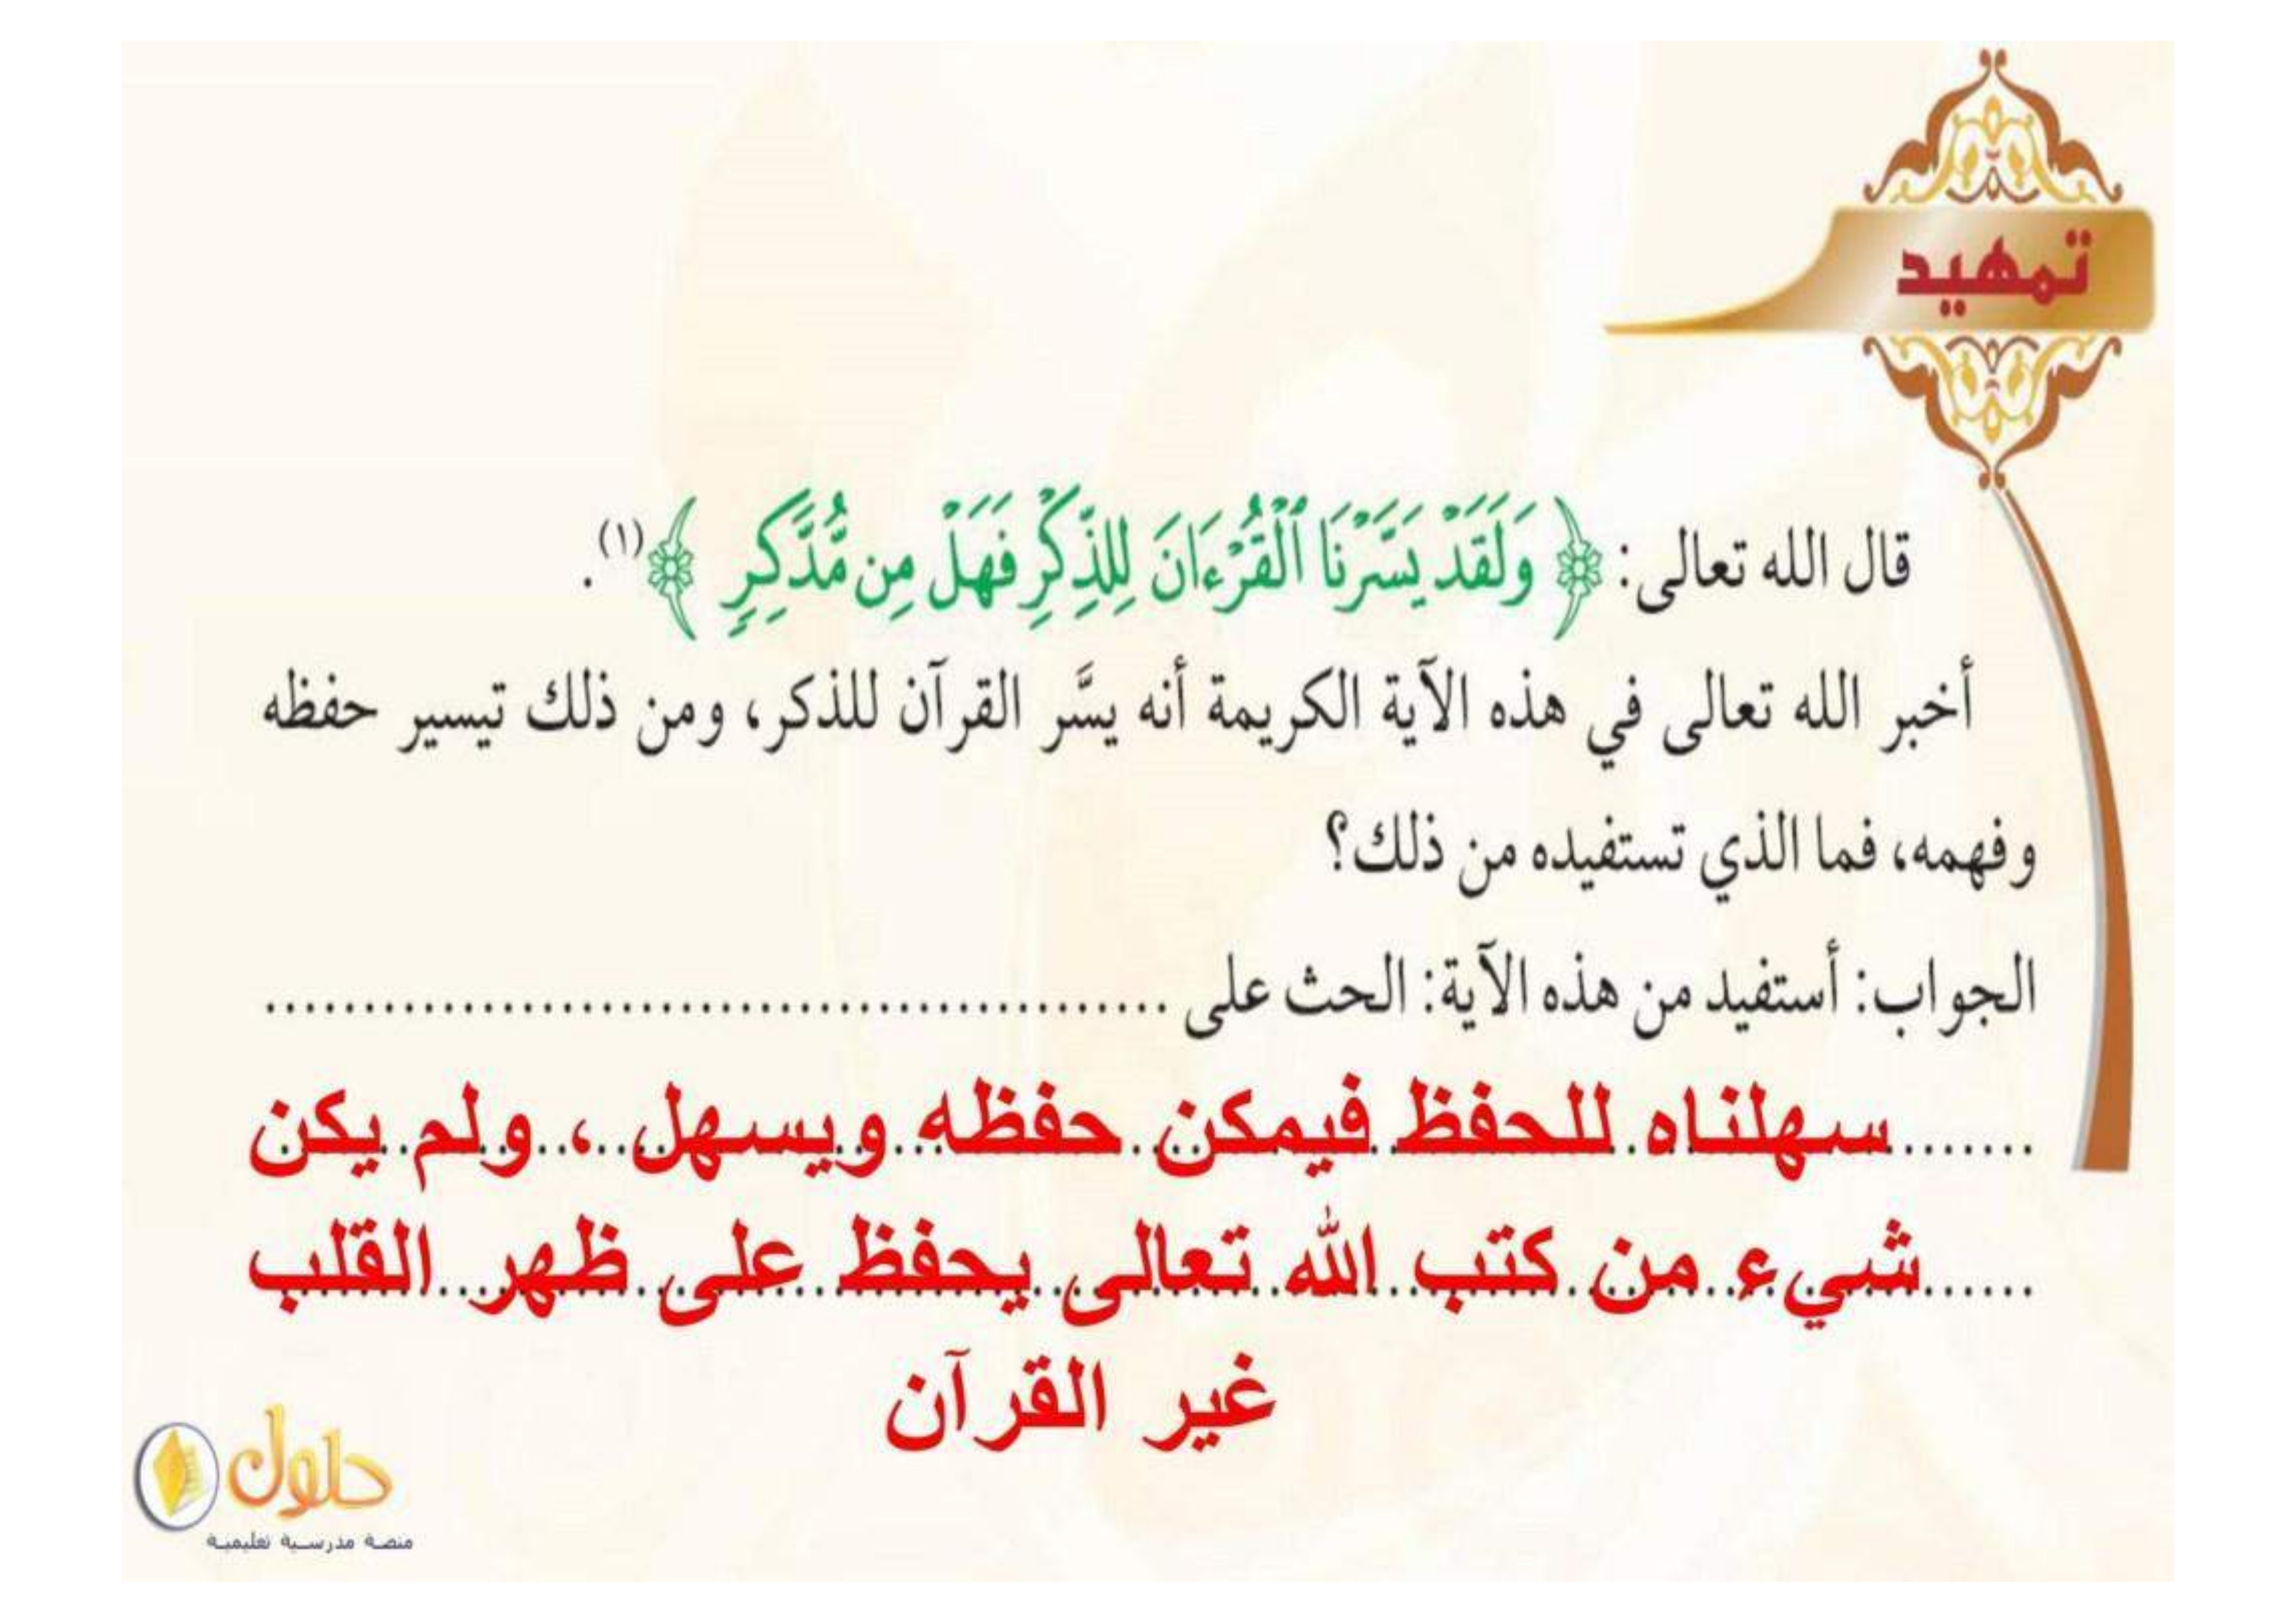 تمهيد
قال الله تعالى: ﴿ وَلَقَدْ يَسَّرْنَا ٱلْقُرْءَانَ لِلذِّكْرِ فَهَلْ مِن مُّدَّكِرٍ ﴾(١).
أخبر الله تعالى في هذه الآية الكريمة أنه يسَّر القرآن للذكر، ومن ذلك تيسير حفظه
وفهمه، فما الذي تستفيده من ذلك؟
الجواب: أستفيد من هذه الآية: الحث على ..............................................
سهلناه للحفظ فيمكن حفظه ويسهل ، ولم يكن
شيء من كتب الله تعالى يحفظ على ظهر القلب
غير القرآن
حلول
منصة مدرسية تعليمية